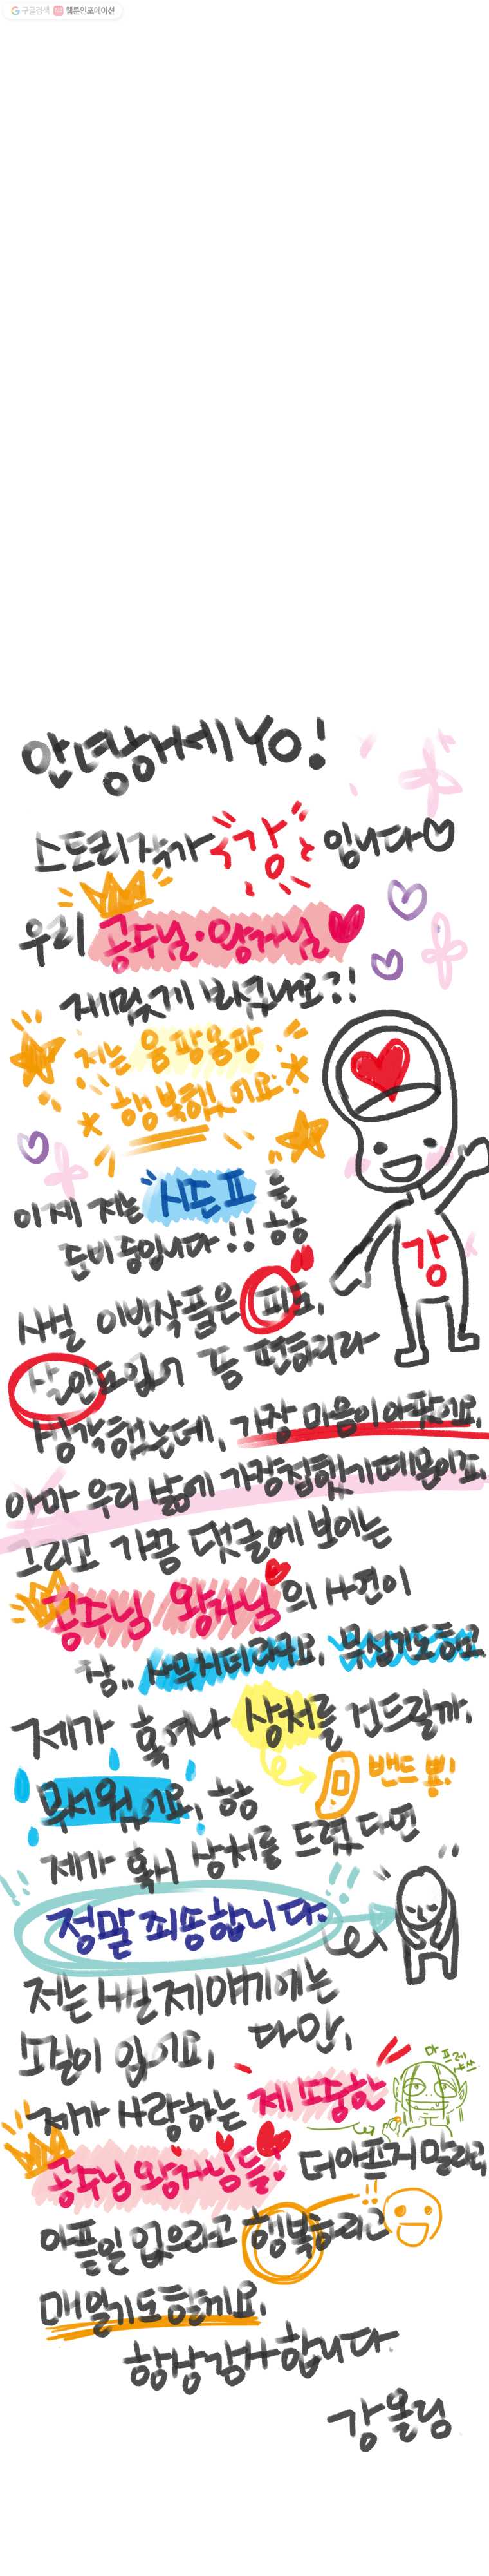 구글검색 웹툰인포메이션
안녕하세YO!
스토리작가 강 입니다
우리 공주님·왕자님
재밌게 보셨나요?!
저는 웅팡옹팡
행복했어요
이제 저는 시즌표를
준비 중입니다!! ㅎㅎ
사실 이번 작품은 피도,
살인도 없어 좀 편하리라
생각했는데, 가장 마음이 아팠어요.
아마 우리 삶에 가장 접했기 때문이죠.
그리고 가끔 댓글에 보이는
공주님 왕자님의 사연이
참.. 사무치더라구요. 무섭기도 하고
제가 혹여나 상처를 건드릴까.
밴드 뿅!
무서웠어요. ㅎㅎ
제가 혹시 상처를 드렸다면
정말 죄송합니다.
저는 제 얘기에는
소질이 없어요. 다만,
제가 사랑하는 제 소중한
공주님 왕자님들. 더 아프지 말라고
아플 일 없으라고 행복하라고
매일 기도할게요.
항상 감사합니다.
강올림
강